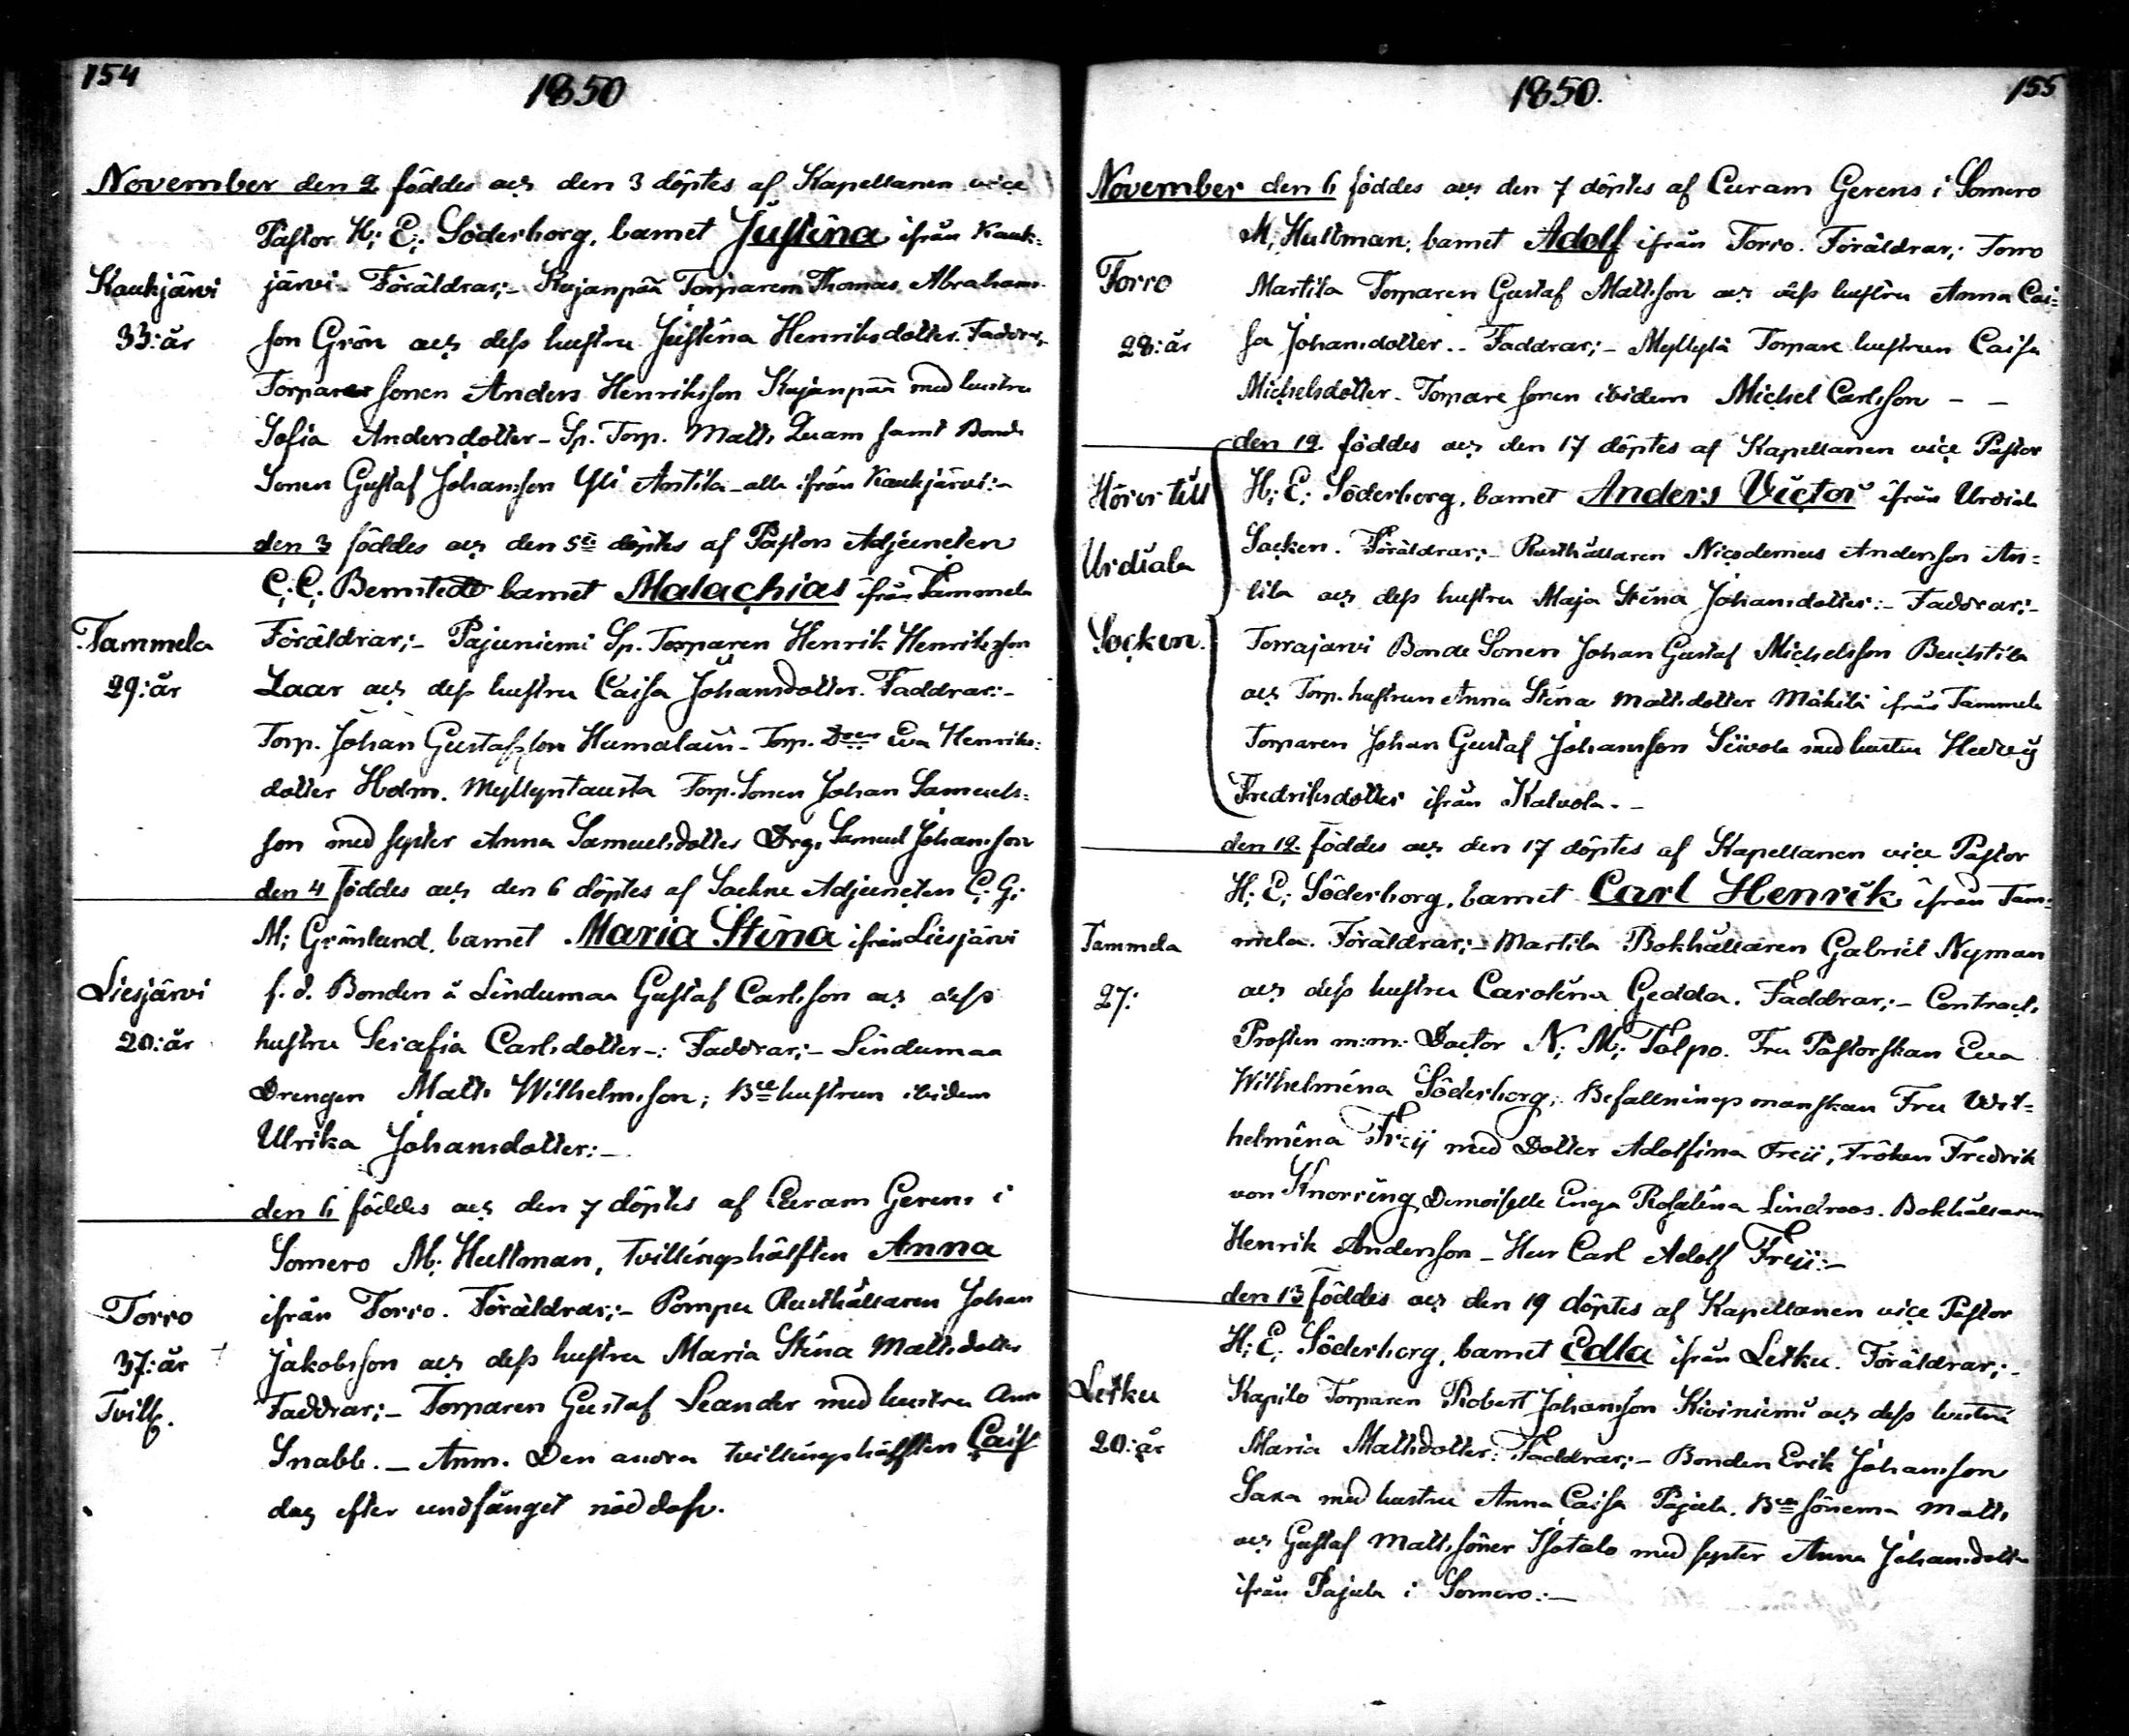 154
1850
November den 2 föddes och den 3 döptes af Kapellanen vice
Pastor H: E: Söderborg, barnet Justina ifrån Kauk-
Kaukjärvi
33: år
järvi. Föräldrar;- Kujanpää Torparen Thomas Abraham-
son Grön och dess hustru Justina Henriksdotter. Faddrar;-
Torpare sonen Anders Henriksson Kujanpää med hustru
Sofia Andersdotter - Sp. Torp. Matts Quam samt Bonde
Sonen Gustaf Johansson Yli Anttila - alla ifrån Kaukjärvi:-
den 3 föddes och den 5te döptes af Pastors Adjuncten
C: C: Bernstedt barnet Malachias ifrån Tammela
Tammela
29: år
Föräldrar;- Pajuniemi Sp. Torparen Henrik Henriksson
Laar och dess hustru Caisa Johansdotter. Faddrar:-
Torp. Johan Gustafsson Humalain - Torp. Dren Eva Henriks-
dotter Holm. Myllyntausta Torp. Sonen Johan Samuels-
son med syster Anna Samuelsdotter Drg. Samuel Johansson
den 4 föddes och den 6 döptes af Sockne Adjuncten C: G:
M; Grönlund. barnet Maria Stina ifrån Liesjärvi
Liesjärvi
20: år
f. d. Bonden å Lindumaa Gustaf Carlsson och dess
hustru Serafia Carlsdotter -: Faddrar;- Lindumaa
Drengen Matts Wilhelmsson; Bde hustrun ibidem
Ulrika Johansdotter:-
den 6 föddes och den 7 döptes af Curam Gerens i
Somero M; Hultman, Tvillingshälften Anna
Torro
37: år
Tvill.
ifrån Torro. Föräldrar;- Pompu Rusthållaren Johan
Jakobsson och dess hustru Maria Stina Mattsdotter
Faddrar;- Torparen Gustaf Leander med hustru Anna
Snabb. - Anm. Den andra tvillingshälften Cais
dog efter undfånget nöddop.
155
1850.
November den 6 föddes och den 7 döptes af Curam Gerens i Somero
M; Hultman; barnet Adolf ifrån Torro. Föräldrar; Torro
Torro
28: år
Martila Torparen Gustaf Mattsson och dess hustru Anna Cai-
sa Johansdotter.. Faddrar;- Myllylä Torpare hustrun Caisa
Michelsdotter - Torpare sonen ibidem Michel Carlsson - -
den 12 föddes och den 17 döptes af Kapellanen vice Pastor
Hörer till
Urdiala
Socken.
H; E; Söderborg, barnet Anders Victor ifrån Urdiala
Socken. Föräldrar;- Rusthållaren Nicodemus Andersson An-
tila och dess hustru Maja Stina Johansdotter:- Faddrar;-
Torrajärvi Bonde Sonen Johan Gustaf Michelsson Buchtila
och Torp. hustrun Anna Stina Mattsdotter Mäkilä ifrån Tammela
Torparen Johan Gustaf Johansson Siivola med hustru Hedvig
Fredriksdotter ifrån Kalvola.-
den 12 föddes och den 17 döptes af Kapellanen vice Pastor
H; E; Söderborg, barnet Carl Henrik ifrån Tam-
Tammela
27:
mela. Föräldrar;- Martila Bokhållaren Gabriel Nyman
och dess hustru Carolina Gedda. Faddrar;- Contracts
Prosten m:m: Doctor N; M; Tolpo. Fru Pastorskan Eva
Wilhelmina Söderborg; Befallningsmanskan Fru Wil-
helmina Freij med Dotter Adolfina Freij, Fröken Fredrik
von Knorring Demoiselle Enga Rosalina Lindroos. Bokhållaren
Henrik Andersson - Herr Carl Adolf Freij:-
den 13 föddes och den 19 döptes af Kapellanen vice Pastor
H; E; Söderborg, barnet Edla ifrån Letku. Föräldrar;-
Letku
20: år
Kapilo Torparen Robert Johansson Kiviniemi och dess hustru
Maria Mattsdotter: Faddrar;- Bonden Erik Johansson
Saxa med hustru Anna Caisa Pajula. Bde sönerna Matts
och Gustaf Matts söner Isotalo med syster Anna Johansdotter
ifrån Pajula i Somero:-